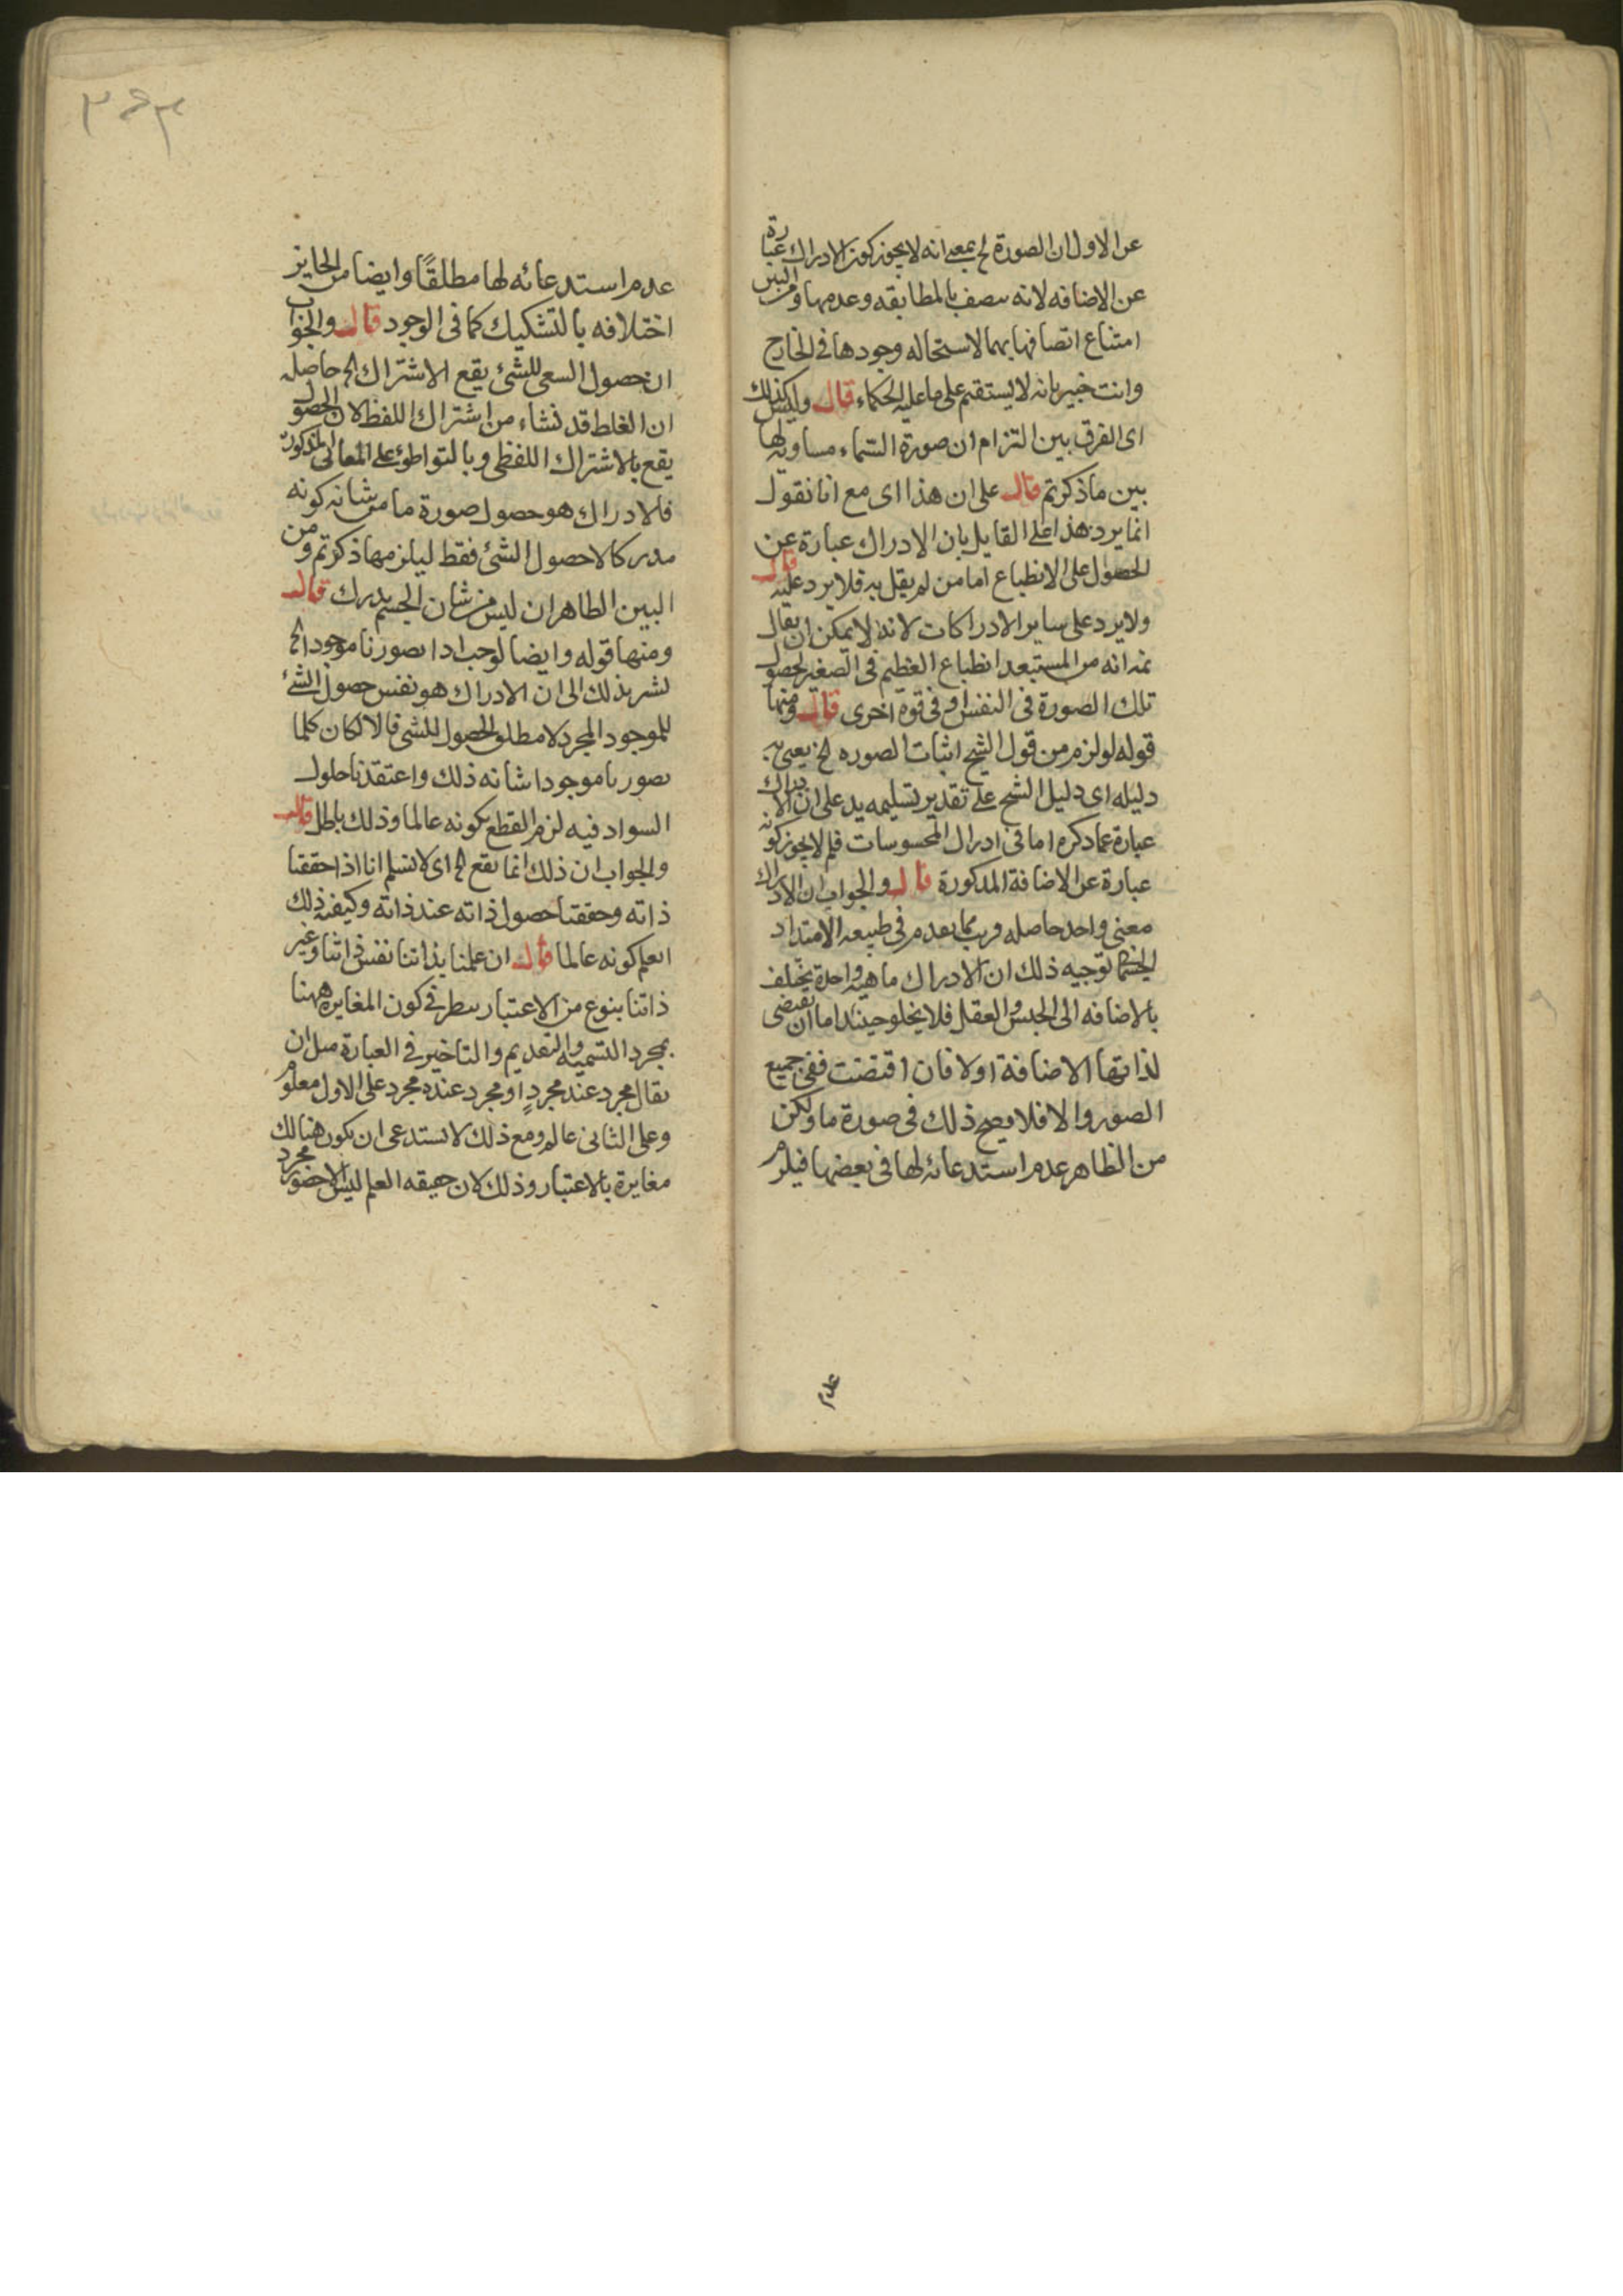 عن الاول ان الصورة الخ بمعنى انه لا يجوز كون الادراك عبارة
عن الاضافه لانه يتصف بالمطابقه وعدمها ومن البين
امتناع اتصافها بهما لاستحاله وجودها فى الخارج
وانت خبير بانه لا يستقيم على ما عليه الحكماء قال وليس كذلك
اى الفرق بين التزام ان صورة السماء مساوية لها
بين ما ذكرتم قال على ان هذا اى مع انا نقول
انما يرد هذا على القايل بان الادراك عبارة عن
الحصول على الانطباع اما من لم يقل به فلا يرد عليه قال
ولا يرد على ساير الادراكات لانه لا يمكن ان يقال
ثمه انه من المستبعد انطباع العظيم فى الصغير لحصول
تلك الصورة فى النفس او فى قوة اخرى قال ومنها
قوله لو لزم من قول الشيخ اثبات الصوره الخ يعنى به
دليله اى دليل الشيخ على تقدير تسليمه يدل على ان الادراك
عبارة عما ذكره اما فى ادراك المحسوسات فلم لا يجوز كونه
عبارة عن الاضافة المذكورة قال والجواب ان الادراك
معنى واحد حاصله قريب مما تقدم فى طبيعه الامتداد
الجسمانى توجيه ذلك ان الادراك ماهية واحدة يختلف
بالاضافه الى الحس والعقل فلا يخلو حينئذ اما ان تقتضى
لذاتها الاضافة او لا فان اقتضت ففى جميع
الصور والا فلا يصح ذلك فى صورة ما ولكن
من الظاهر عدم استدعائه لها فى بعضها فيلزم
عدم
عدم استدعائه لها مطلقًا وايضا من الجايز
اختلافه بالتشكيك كما فى الوجود قال والجواب
ان حصول الشىء للشئ يقع الاشتراك الخ حاصله
ان الغلط قد نشاء من اشتراك اللفظ لان الحصول
يقع بالاشتراك اللفظى وبالتواطوء على المعانى المذكورة
فالادراك هو حصول صورة ما من شانه كونه
مدركا لا حصول الشئ فقط ليلزم ما ذكرتم ومن
البين الظاهر ان ليس من شان الجسم يدرك قال
ومنها قوله وايضا لوجب اذا تصورنا موجودا الخ
نشير بذلك الى ان الادراك هو نفس حصول الشئ
للموجود المجرد لا مطلق الحصول للشئ قال لكان كلما
تصورنا موجودا شانه ذلك واعتقدنا حلول
السواد فيه لزم القطع بكونه عالما وذلك باطل قال
والجواب ان ذلك انما يقع الخ اى لا نسلم انا اذا حققنا
ذاته وحققنا حصول ذاته عند ذاته وكيفية ذلك
انعلم كونه عالما قال ان علمنا بذاتنا نفس ذاتنا وغير
ذاتنا بنوع من الاعتبار ينظر فى كون المغايره ههنا
بمجرد التسميه والتقديم والتاخير فى العبارة مثل ان
يقال مجرد عند مجردٍ او مجرد عنده مجرد على الاول معلوم
وعلى الثانى عالم ومع ذلك لا يستدعى ان يكون هنالك
مغايرة بالاعتبار وذلك لان حقيقه العلم ليس الا حضور مجرد